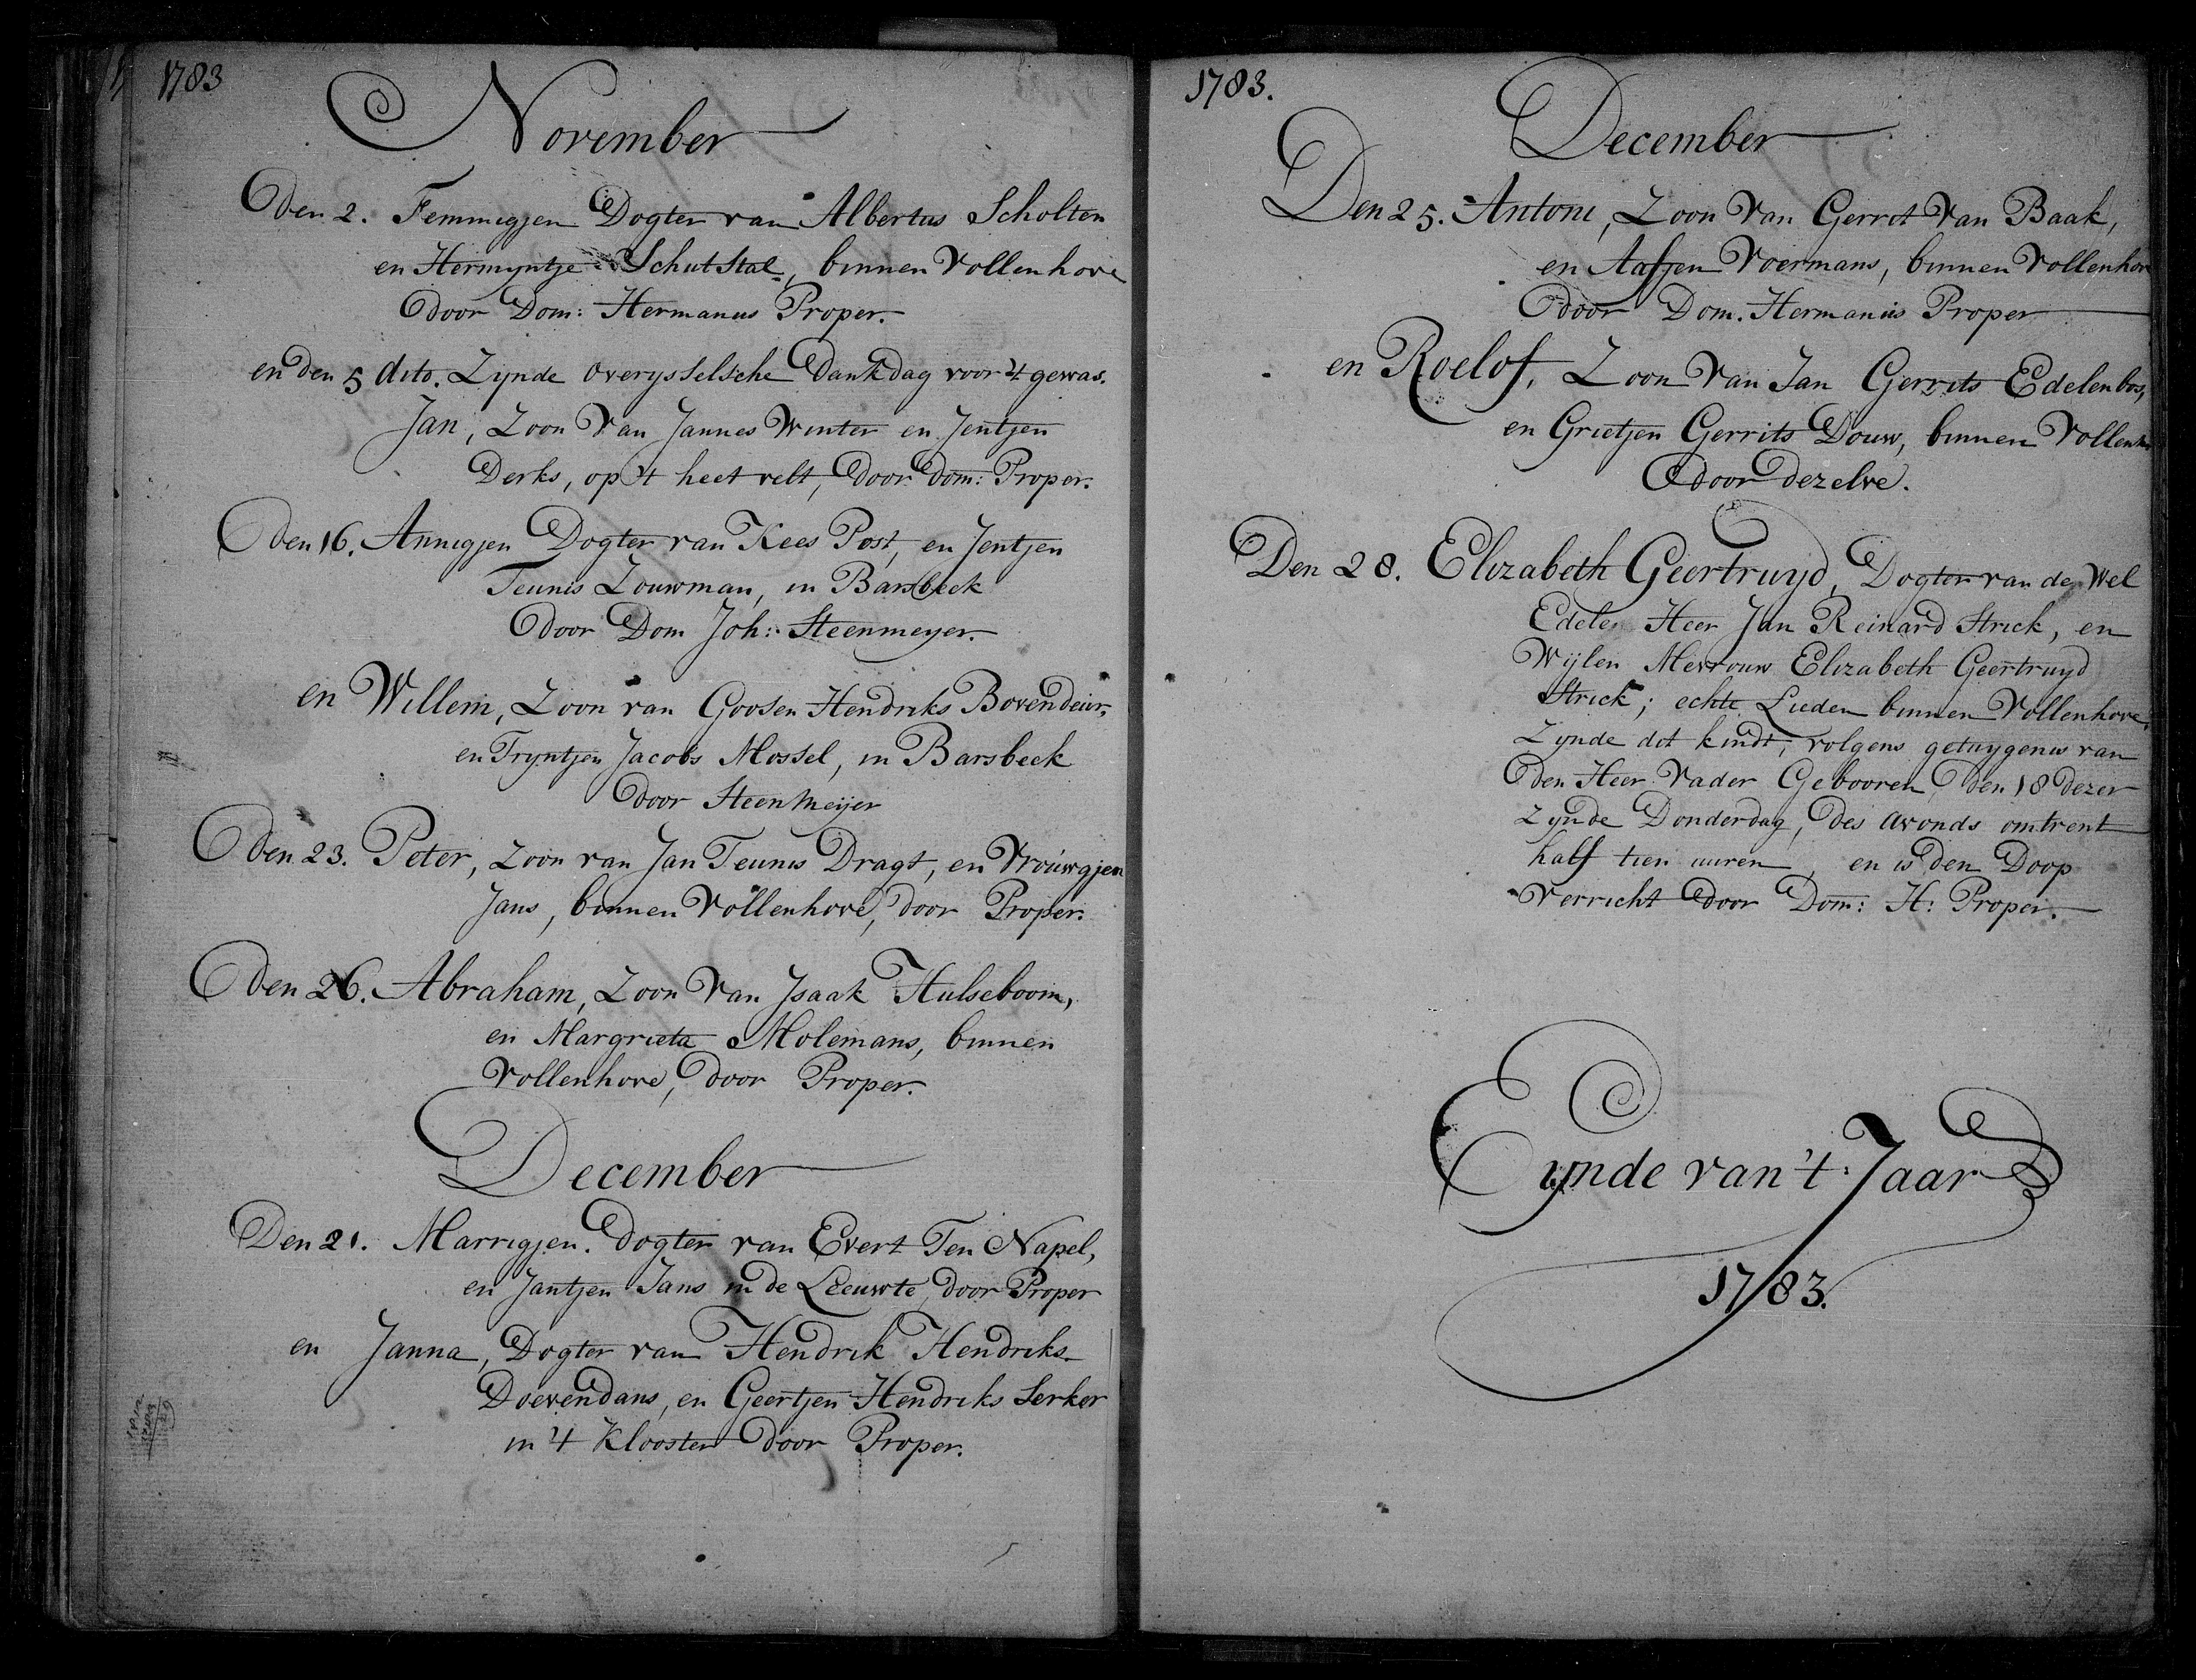 1783
November
den 2. Femmigjen Dogter van Albertus Scholten
en Hermyntje Schutstal, binnen Vollenhove
door Dom: Hermanus Proper.
en den 5 dito. Zynde overysselsche Dankdag voor 't gewas.
Jan, Zoon Van Jannes Winter en Jentjen
Derks, op 't heet velt, door Dom: Proper.
den 16. Annigjen Dogter van Kees Post, en Jentjen
Teunis Zouwman, in Barsbeek
door Dom Joh: Steenmeyer.
en Willem, Zoon van Goosen Hendriks Bovendeur,
en Tryntjen Jacobs Mossel, in Barsbeek
door Steenmeijer
den 23. Peter, Zoon van Jan Teunis Dragt, en Vrouwgjen
Jans, binnen Vollenhove, door Proper.
den 26. Abraham, Zoon Van Jsaak Hulseboom,
en Margrieta Molemans, binnen
Vollenhove, door Proper.
December
Den 21. Marrigjen. Dogter van Evert Ten Napel,
en Jantjen Jans in de Leeuwte, door Proper
en Janna, Dogter van Hendrik Hendriks
Doevendans, en Geertjen Hendriks Serker
in 't Klooster door Proper.
1783.
December
Den 25. Antoni, Zoon Van Gerrit Van Baak,
en Aafjen Voermans, binnen Vollenhov
door Dom. Hermanus Proper
en Roelof, Zoon Van Jan Gerrits Edelenbos,
en Grietjen Gerrits Douw, binnen Vollenh
door dezelve.
Den 28. Elizabeth Geertruyd, Dogter van de Wel
Edelen Heer Jan Reinard Strick, en
Wijlen Mevrouw Elizabeth Geertruyd
Strick; echte Lieden binnen Vollenhove,
Zynde dit kindt, volgens getuygenis van
den Heer Vader Gebooren, den 18 dezer
zynde Donderdag, des avonds omtrent
half tien uuren, en is den Doop
Verricht door Dom: H: Proper.
Eynde van 't Jaar
1783.